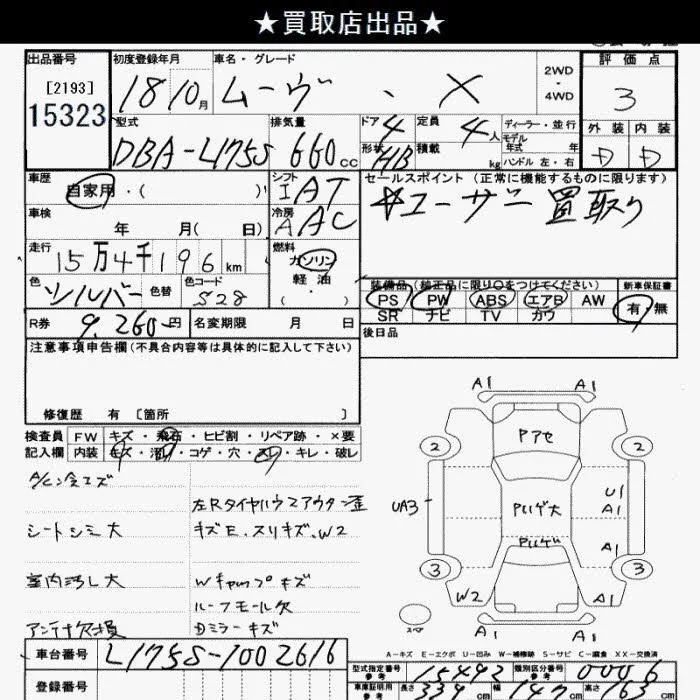 ★買取店出品★
出品番号 初度登録年月 車名・グレード 評価点
[2193] 18 10月 ムーヴ 、 X 2WD・4WD 3
15323
型式 排気量 ドア 4 定員 4人 ディーラー・並行 外装 内装
DBA-L175S 660cc 形状 HB 積載 kg モデル年式 年 D D
ハンドル 左・右
車歴 シフト セールスポイント (正常に機能するものに限ります)
自家用・( ) IAT ☆ユーザー買取り
車検 冷房
年 月( 日) AAC
走行 燃料
15万4千196km ガソリン
軽油
( ・ )
装備品 (純正品に限り○をつけてください) 新車保証書
色 色替 色コード
シルバー S28 PS PW ABS エアB AW 有・無
SR ナビ TV カワ
R券 9,260円 名変期限 月 日 後日品
注意事項申告欄(不具合内容等は具体的に記入して下さい)
修復歴 有 [箇所 ]
検査員 FW キズ・飛石・ヒビ割・リペア跡・×要
記入欄 内装 キズ・汚れ・コゲ・穴・スレ・キレ・破レ
左Rタイヤハウスアウター歪
シートシミ大 キズE、スリキズ、W2
室内汚し大 Wキャップキズ
ルーフモール欠
アンテナ欠損 Dミラーキズ
A1 A1
Pアセ
2 2
UA3 Pハゲ大 U1
A1
Pハゲ A1
3 3
W2 A1
スペア
A1 A1
A-キズ E-エクボ U-凹み W-補修跡 S-サビ C-腐食 XX-交換済
車台番号 L175S-1002616
型式指定番号 参考 15492 類別区分番号 参考 0006
登録番号 車庫証明用 参考 長さ 339cm 幅 147cm 高さ 163cm